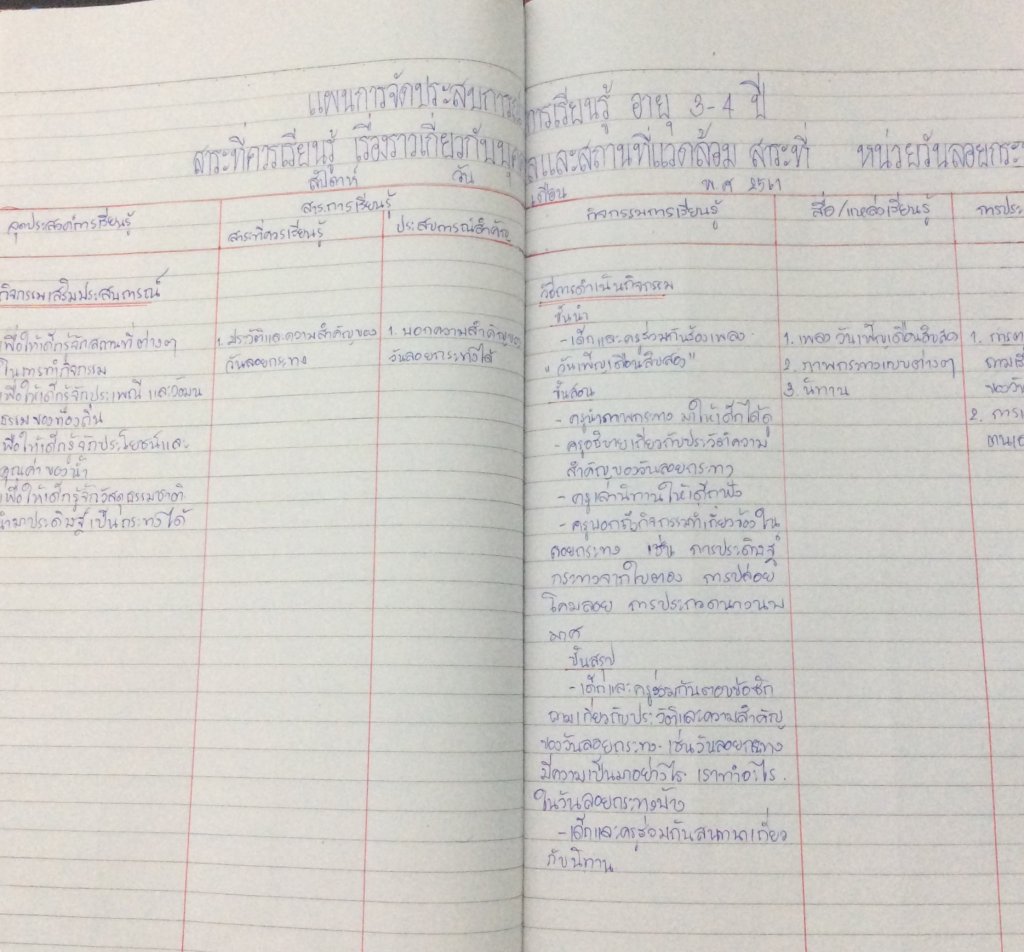 แผนการจัดประสบการณ์การเรียนรู้ อายุ 3-4 ปี
สาระที่ควรเรียนรู้ เรื่องราวเกี่ยวกับบุคคลและสถานที่แวดล้อม สาระที่ หน่วยวันลอยกระ
สัปดาห์ วัน เดือน พ.ศ 2561
จุดประสงค์การเรียนรู้
สาระการเรียนรู้
สาระที่ควรเรียนรู้
ประสบการณ์สำคัญ
กิจกรรมเสริมประสบการณ์
เพื่อให้เด็กรู้จักสถานที่ต่างๆ
ในการทำกิจกรรม
เพื่อให้เด็กรู้จักประเพณี และวัฒน
ธรรมของท้องถิ่น
เพื่อให้เด็กรู้จักประโยชน์และ
คุณค่าของน้ำ
เพื่อให้เด็กรู้จักวัสดุธรรมชาติ
นำมาประดิษฐ์เป็นกระทงได้
1. ประวัติและความสำคัญของ
วันลอยกระทง
1. บอกความสำคัญของ
วันลอยกระทงได้
กิจกรรมการเรียนรู้
วิธีการดำเนินกิจกรรม
ขั้นนำ
- เด็กและครูร่วมกันร้องเพลง
"วันเพ็ญเดือนสิบสอง"
ขั้นสอน
- ครูนำภาพกระทง มาให้เด็กได้ดู
- ครูอธิบายเกี่ยวกับประวัติความ
สำคัญของวันลอยกระทง
- ครูเล่านิทานให้เด็กฟัง
- ครูบอกถึงกิจกรรมที่เกี่ยวข้องใน
ลอยกระทง เช่น การประดิษฐ์
กระทงจากใบตอง การปล่อย
โคมลอย การประกวดนางนพ
มาศ
ขั้นสรุป
- เด็กและครูร่วมกันตอบข้อซัก
ถามเกี่ยวกับประวัติและความสำคัญ
ของวันลอยกระทง เช่นวันลอยกระทง
มีความเป็นมาอย่างไร เราทำอะไร
ในวันลอยกระทงบ้าง
- เด็กและครูร่วมกันสนทนาเกี่ยว
กับนิทาน
สื่อ/แหล่งเรียนรู้
1. เพลง วันเพ็ญเดือนสิบสอง
2. ภาพกระทงแบบต่างๆ
3. นิทาน
การประ
1. การต
ถามเกี่
ของวัน
2. การ